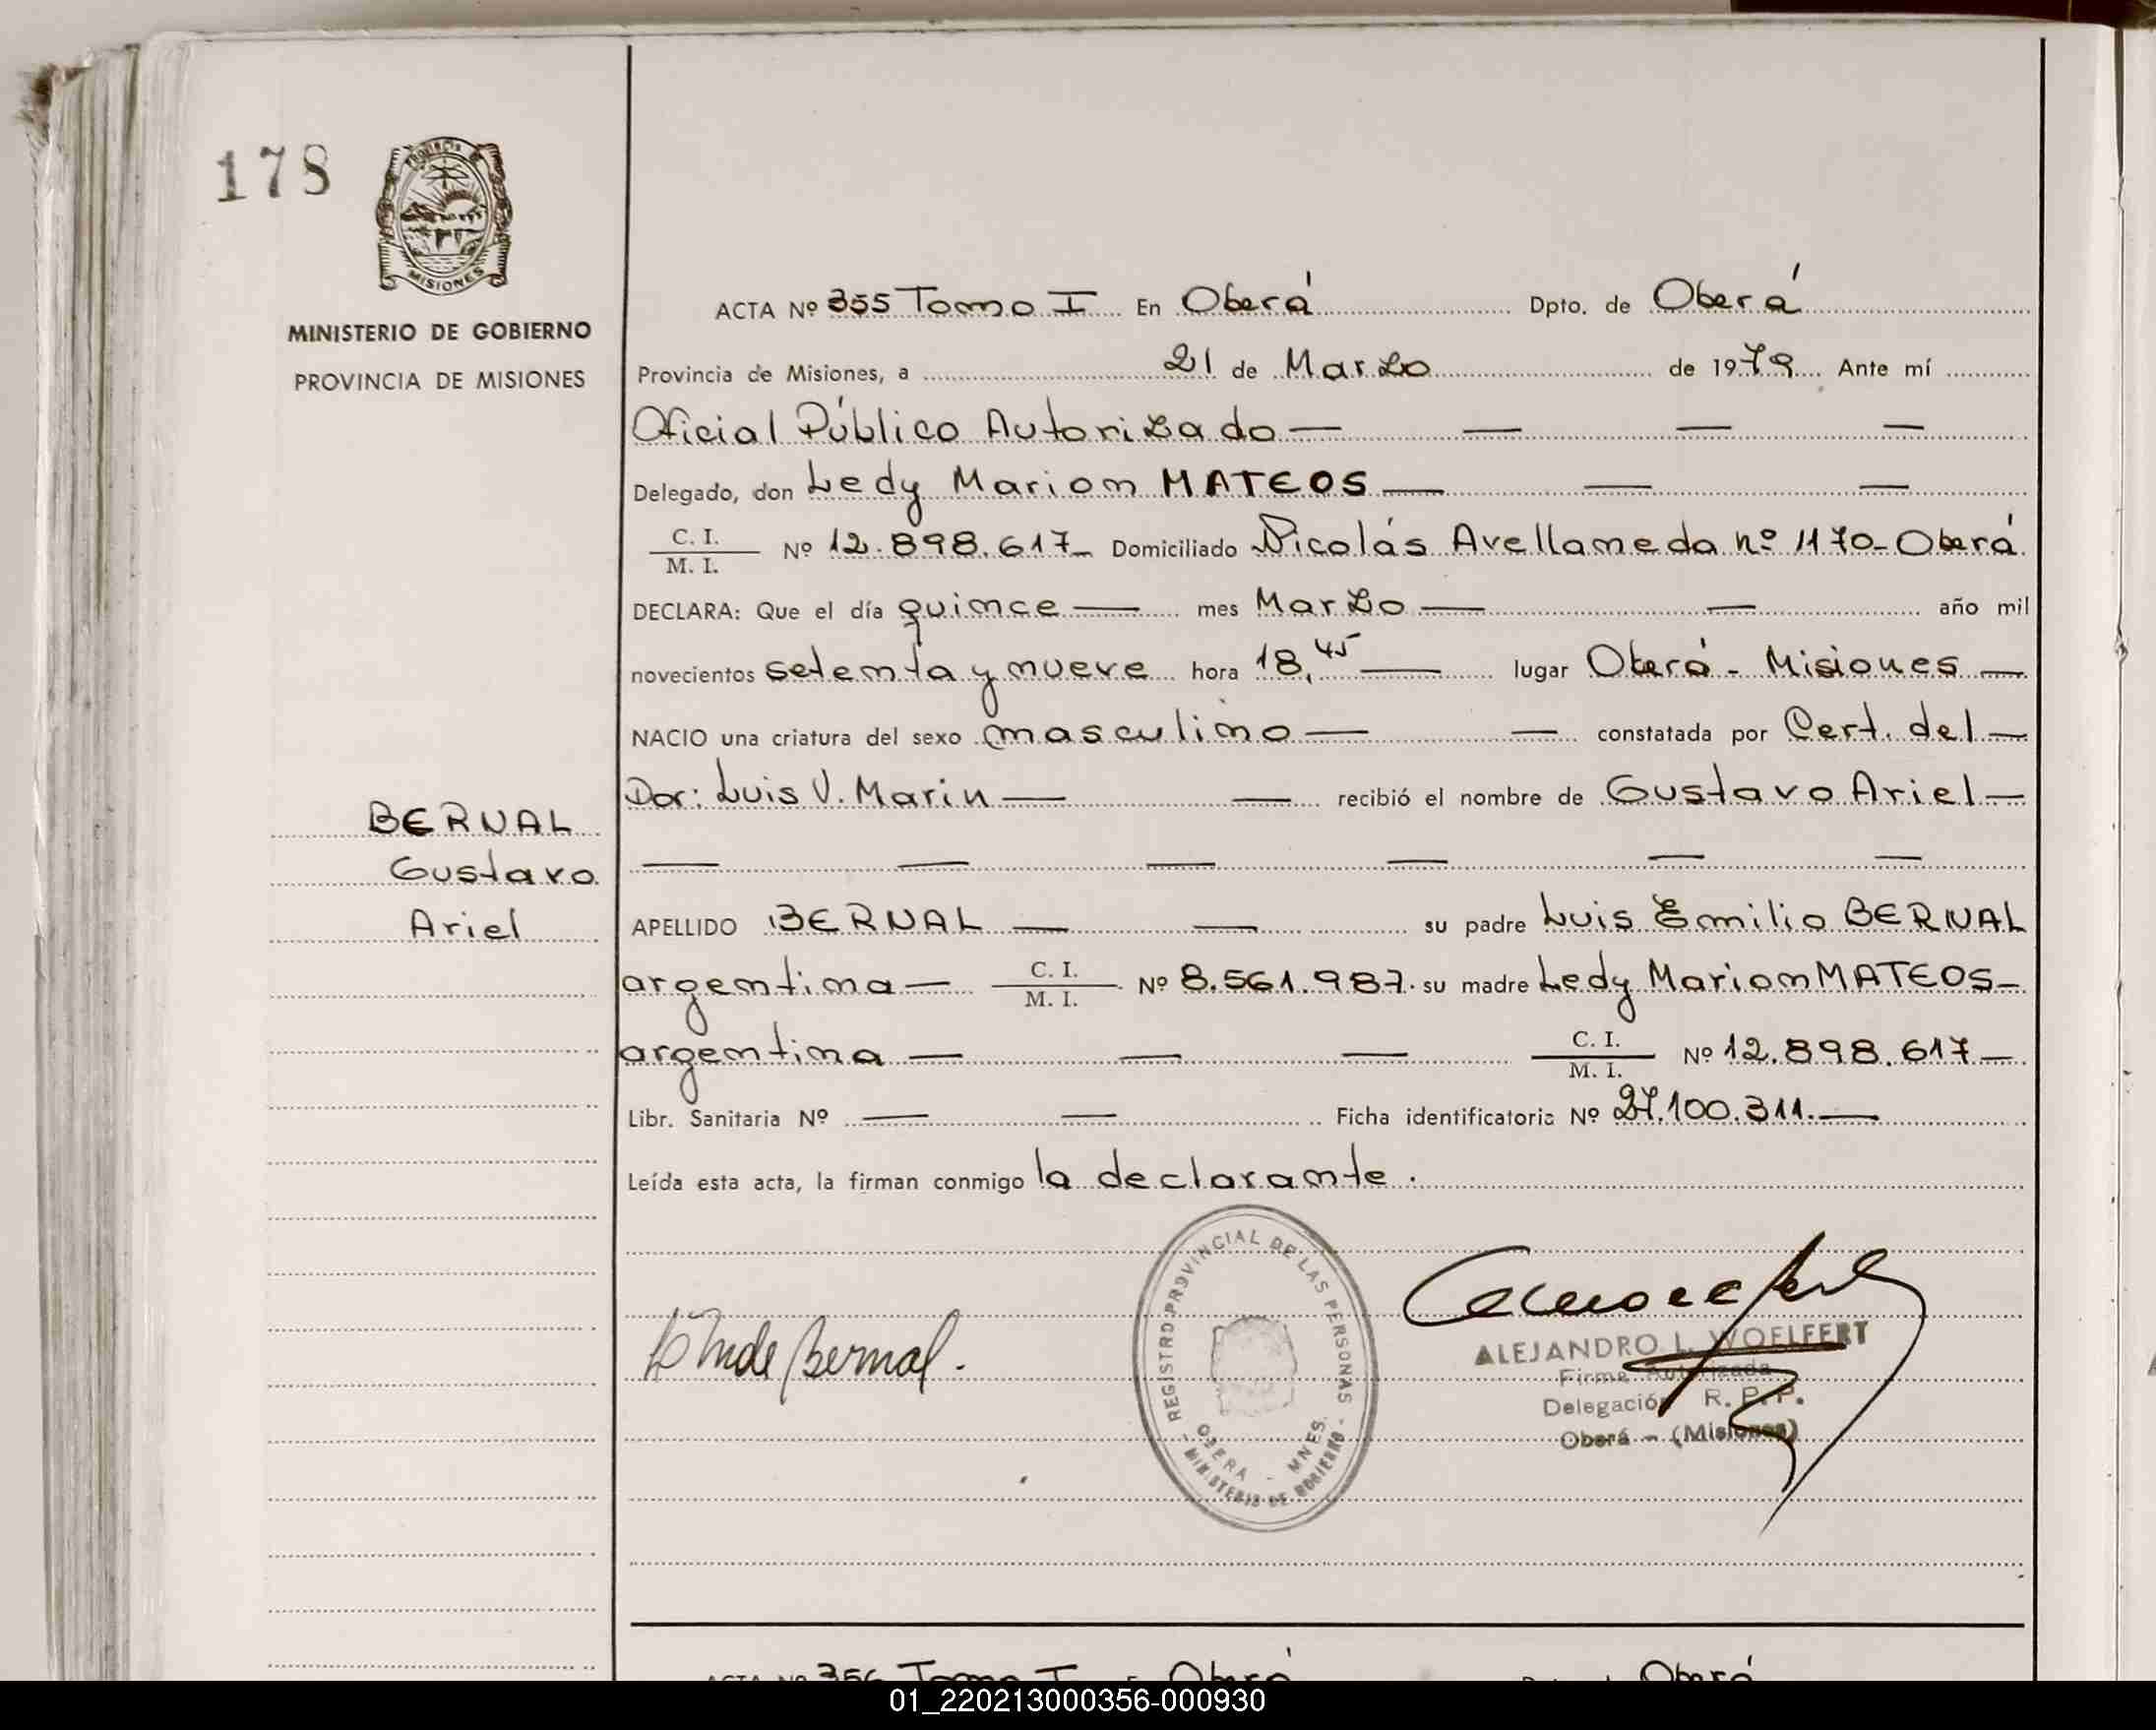 178
PROVINCIA
MISIONES
MINISTERIO DE GOBIERNO
PROVINCIA DE MISIONES
BERNAL
Gustavo
Ariel
ACTA Nº 355 Tomo I En Oberá Dpto. de Oberá
Provincia de Misiones, a 21 de Marzo de 1979 Ante mí
Oficial Público Autorizado — — — —
Delegado, don Ledy Marion MATEOS — — —
C. I.
M. I.
Nº 12.898.617- Domiciliado Nicolás Avellaneda nº 1170-Oberá
DECLARA: Que el día quince — mes Marzo — — año mil
novecientos setenta y nueve hora 18,45 — lugar Oberá - Misiones —
NACIO una criatura del sexo masculino — — constatada por Cert. del —
Dor: Luis V. Marin — — recibió el nombre de Gustavo Ariel —
— — — — — —
APELLIDO BERNAL — — su padre Luis Emilio BERNAL
argentina — C. I. / M. I. Nº 8.561.987. su madre Ledy Marion MATEOS —
argentina — — — C. I. / M. I. Nº 12.898.617 —
Libr. Sanitaria Nº — — Ficha identificatoria Nº 27.100.311. —
Leída esta acta, la firman conmigo la declarante.
de Bernal.
REGISTRO PROVINCIAL DE LAS PERSONAS
OBERA - MNES.
- MINISTERIO DE GOBIERNO -
ALEJANDRO L. WOELFERT
Firma Autorizada
Delegación R. P. P.
Oberá - (Misiones)
ACTA Nº 356 Tomo I En Oberá Dpto. de Oberá
01_220213000356-000930